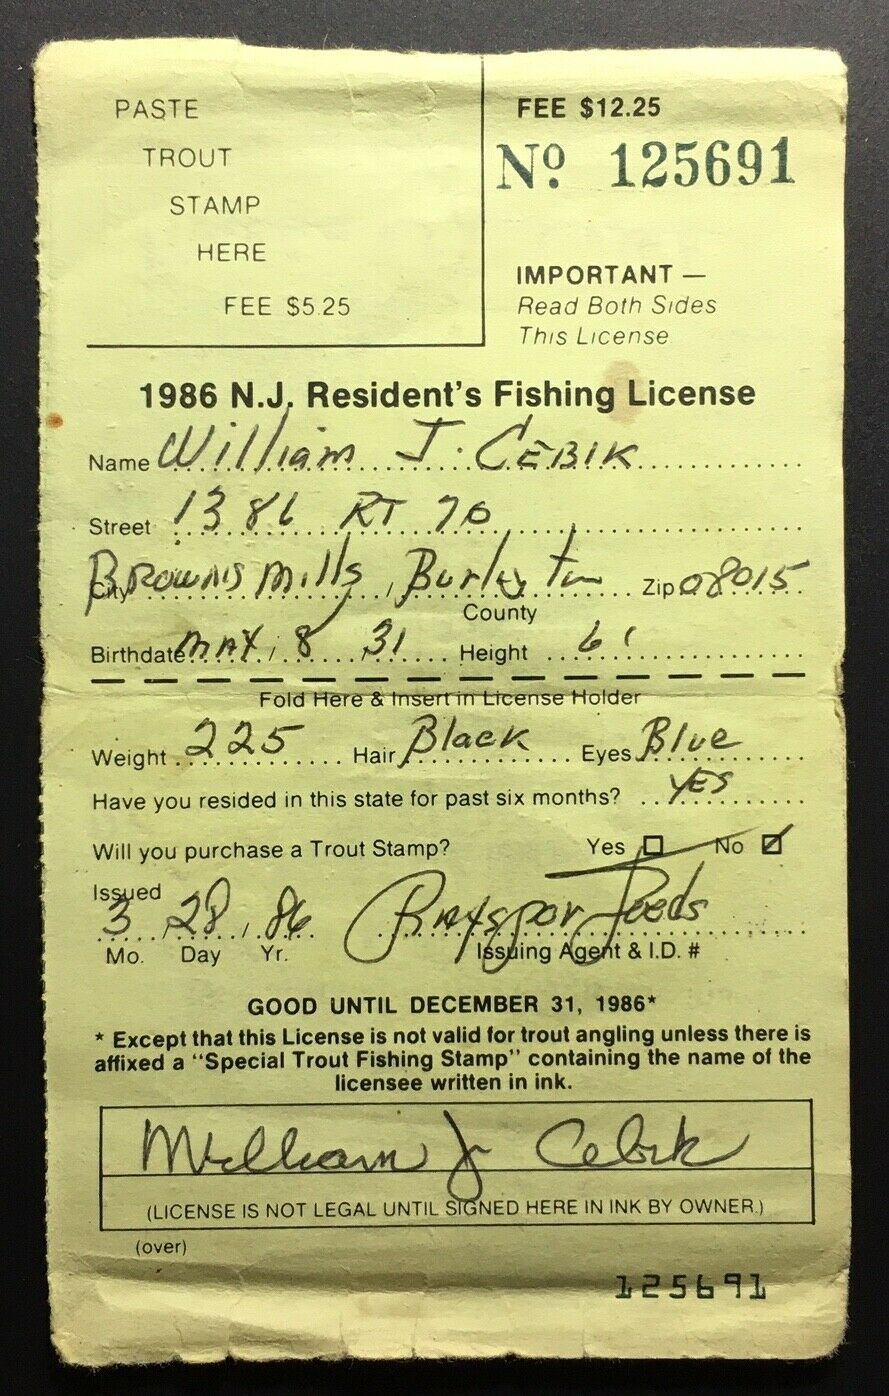 PASTE
TROUT
STAMP
HERE
FEE $5.25
FEE $12.25
Nº 125691
IMPORTANT —
Read Both Sides
This License
1986 N.J. Resident's Fishing License
Name William J. CEBIK
Street 1386 RT 70
City BROWNS Mills, Burlington Zip 08015
County
Birthdate MAY, 8, 31 Height 6'
Fold Here & Insert in License Holder
Weight 225 Hair Black Eyes Blue
Have you resided in this state for past six months? YES
Will you purchase a Trout Stamp? Yes ☐ No ☑
Issued
3, 28, 86
Mo. Day Yr. Issuing Agent & I.D. #
GOOD UNTIL DECEMBER 31, 1986*
* Except that this License is not valid for trout angling unless there is
affixed a "Special Trout Fishing Stamp" containing the name of the
licensee written in ink.
William J Cebik
(LICENSE IS NOT LEGAL UNTIL SIGNED HERE IN INK BY OWNER.)
(over)
125691